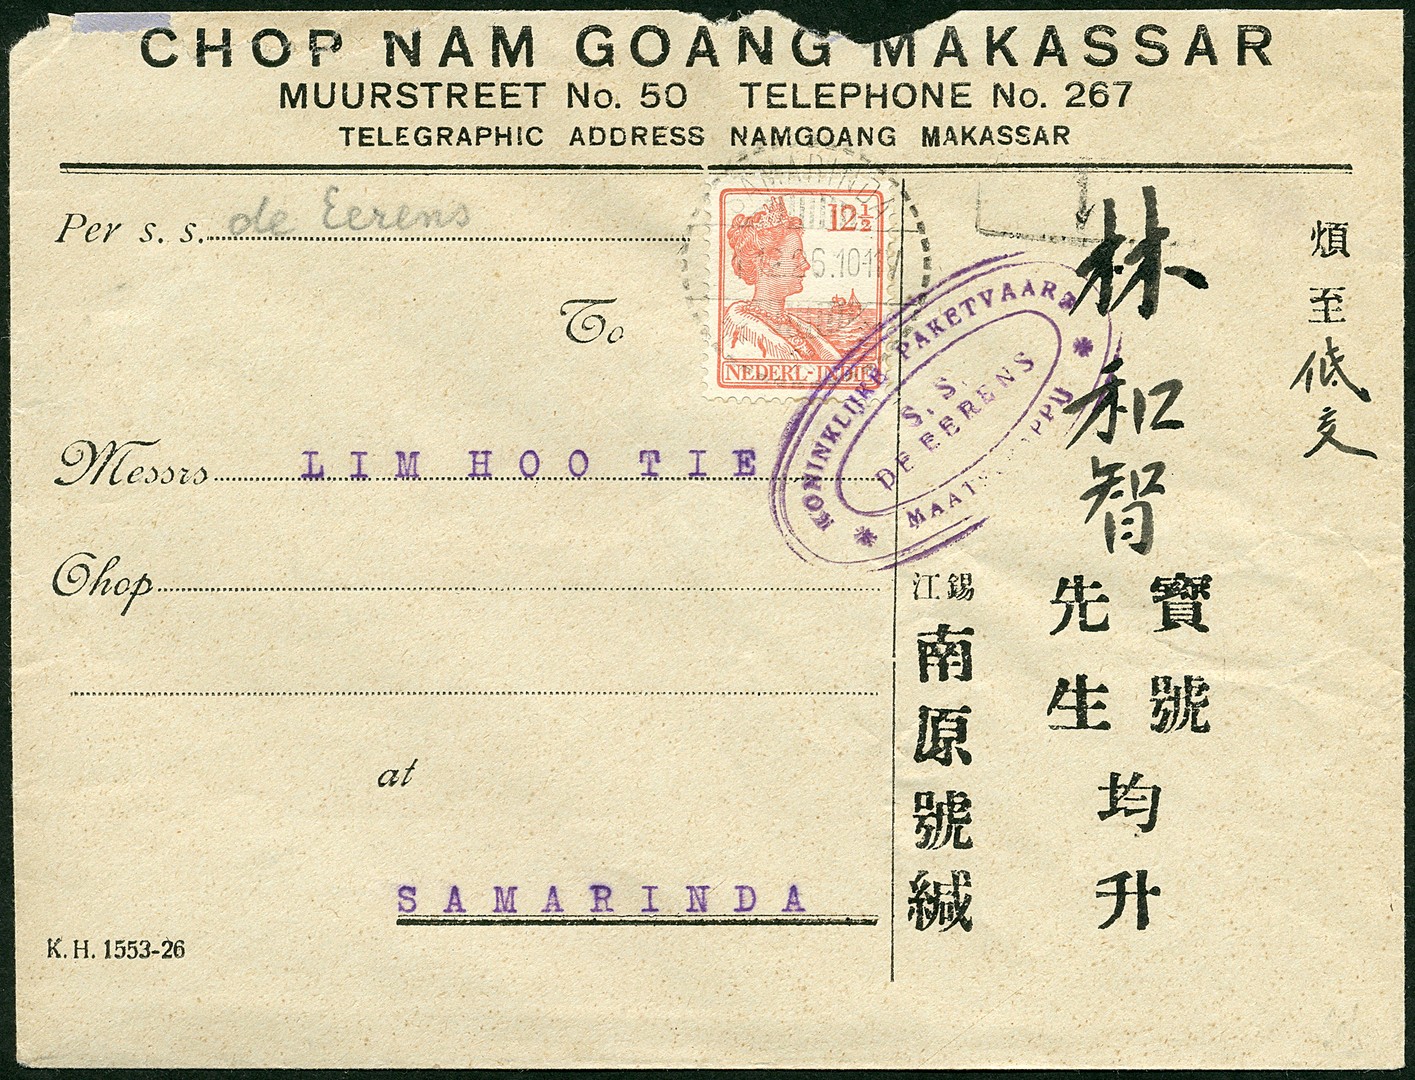 CHOP NAM GOANG MAKASSAR
MUURSTREET No. 50 TELEPHONE No. 267
TELEGRAPHIC ADDRESS NAMGOANG MAKASSAR
Per s. s. de Eerens
To
Messrs LIM HOO TIE
Chop
at
SAMARINDA
K. H. 1553-26
SAMARINDA
26.10-11V
12½
NEDERL-INDIE
KONINKLIJKE PAKETVAART
S. S.
DE EERENS
MAATSCHAPPIJ
煩至低交
林和智
寶號
先生
均升
錫江
南原號緘